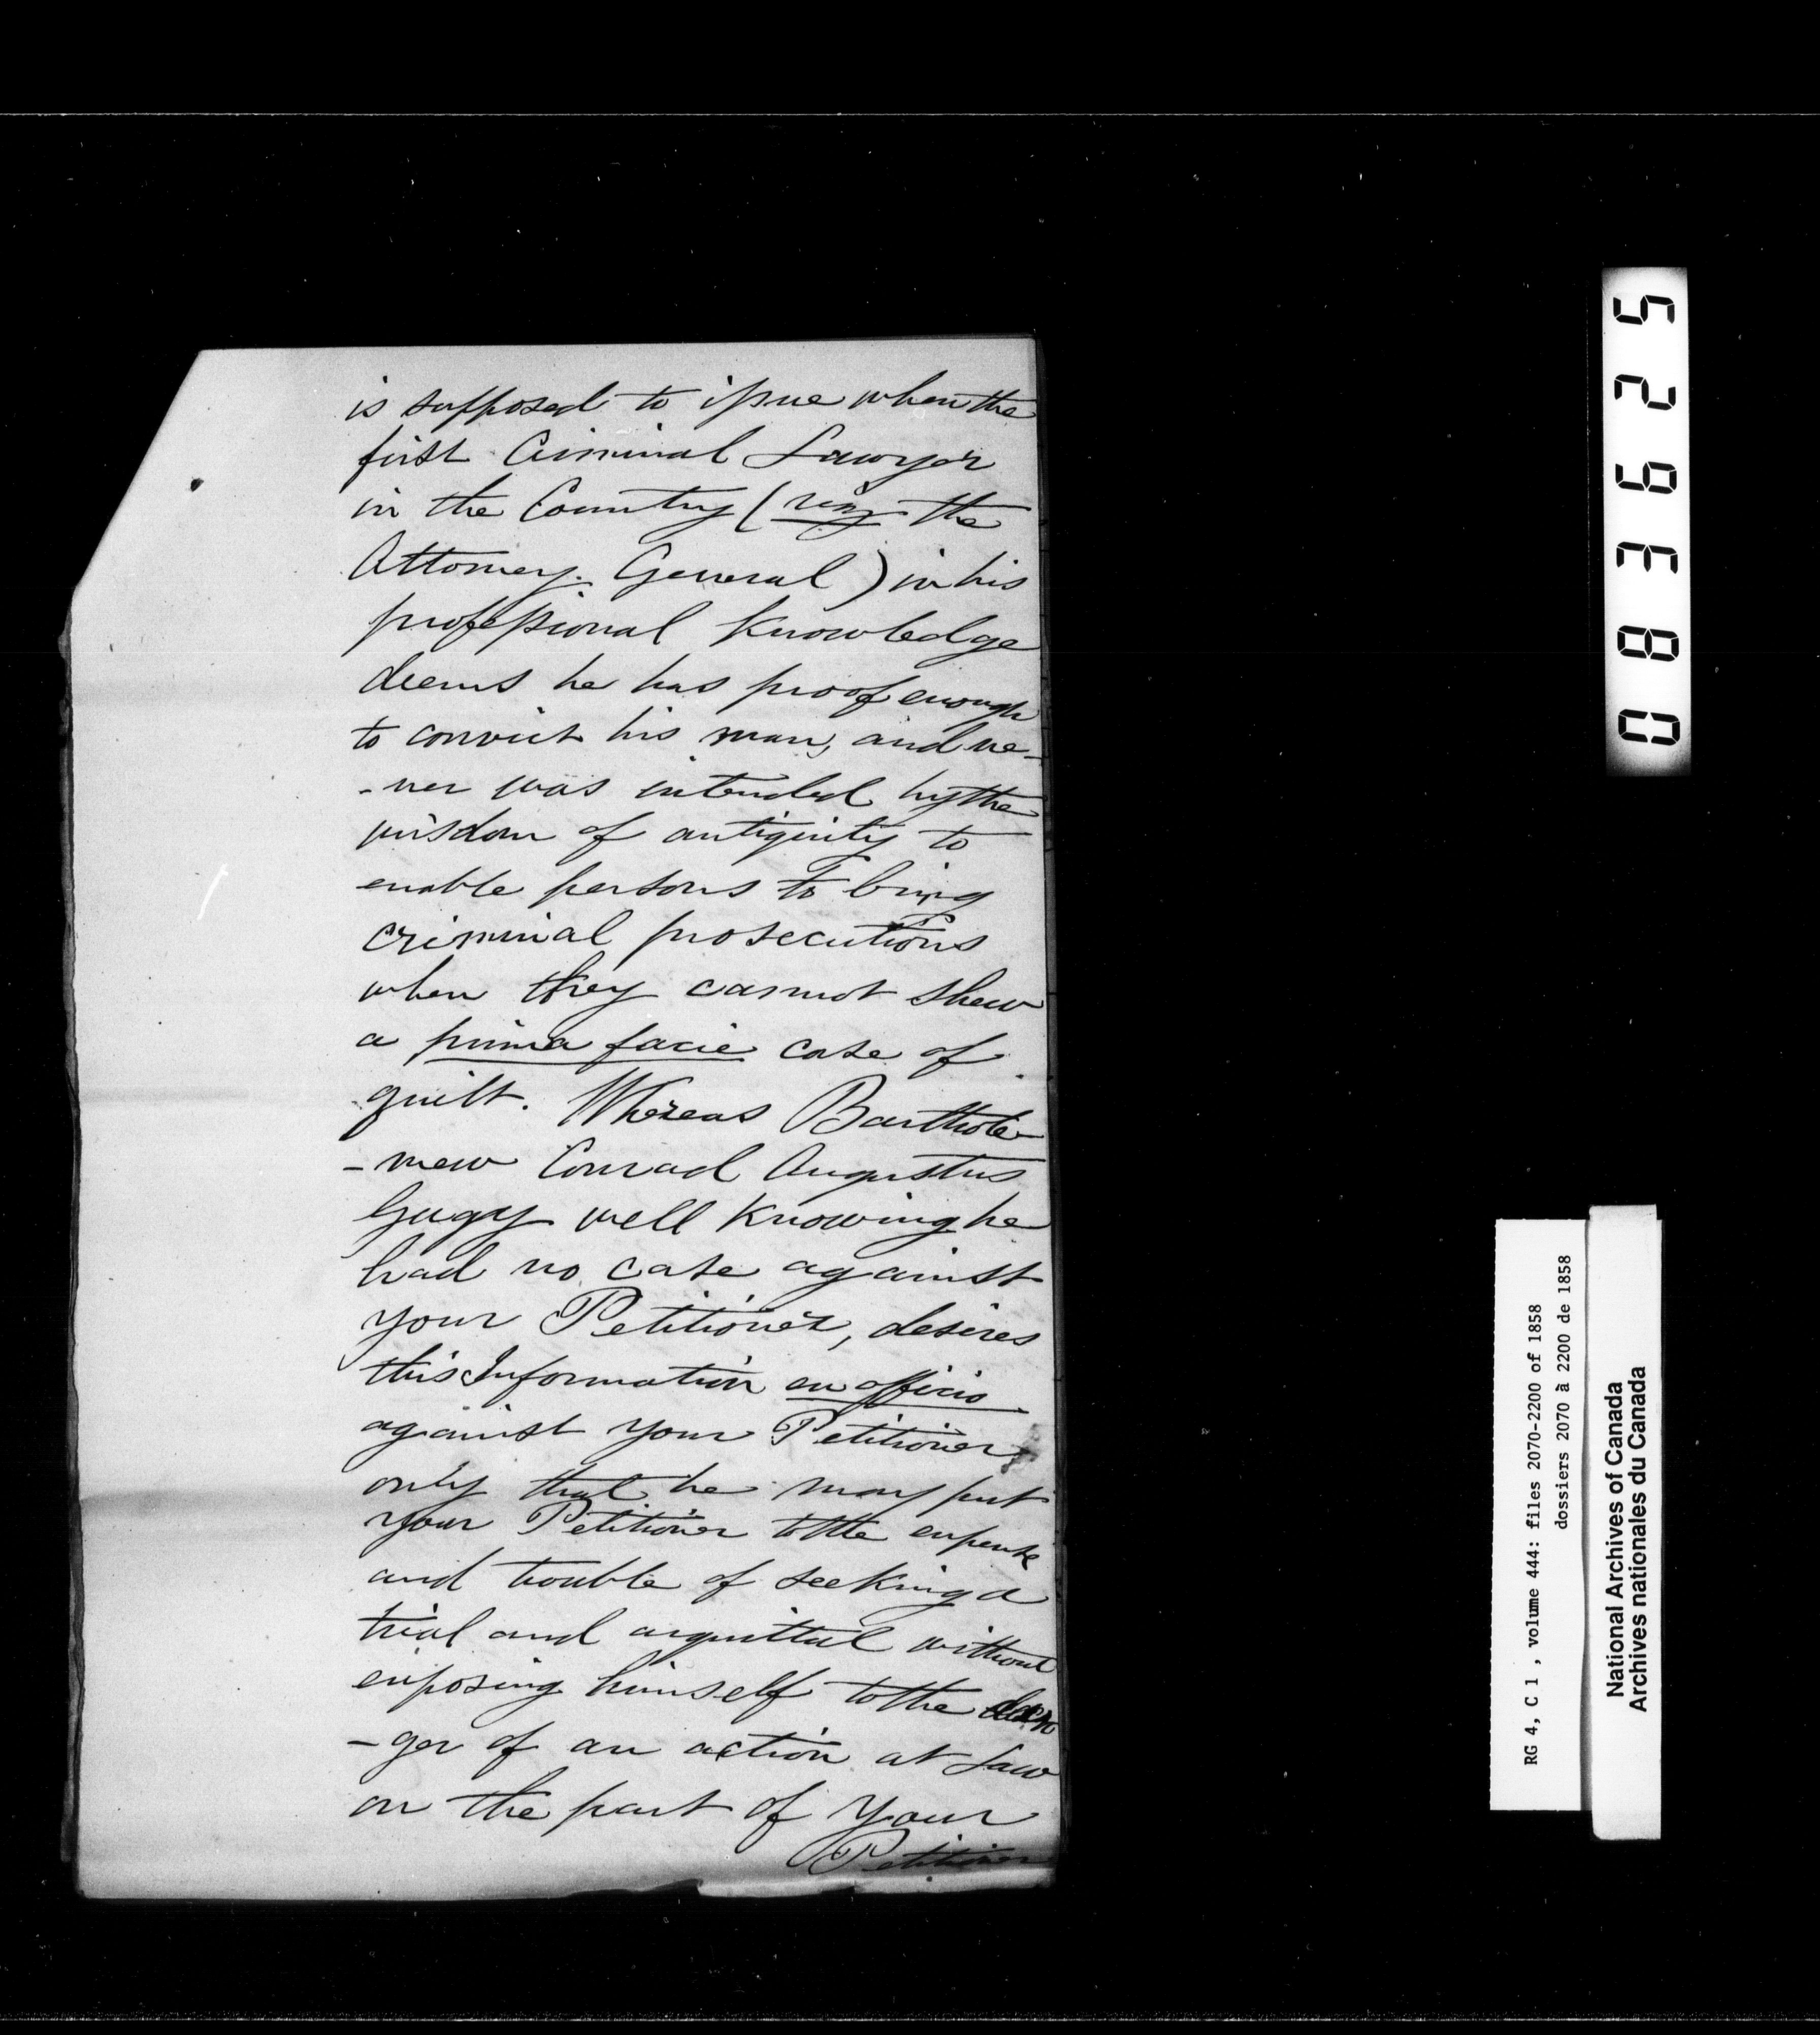 is supposed to issue when the
first Criminal Lawyer
in the Country (viz the
Attorney. General) in his
professional Knowledge
deems he has proof enough
to convict his man, and ne-
-ver was intended by the
wisdom of antiquity to
enable persons to bring
criminal prosecutions
when they cannot shew
a prima facie case of
guilt. Whereas Bartholo-
-mew Conrad Augustus
Gugy well Knowing he
had no case against
your Petitioner, desires
this Information ex officio
against your Petitioner,
only that he may put
your Petitioner to the expense
and trouble of seeking a
trial and acquittal without
exposing himself to the dan
-ger of an action at Law
on the part of Your
Petitioner
083625
RG 4, C 1 , volume 444: files 2070-2200 of 1858
dossiers 2070 à 2200 de 1858
National Archives of Canada
Archives nationales du Canada